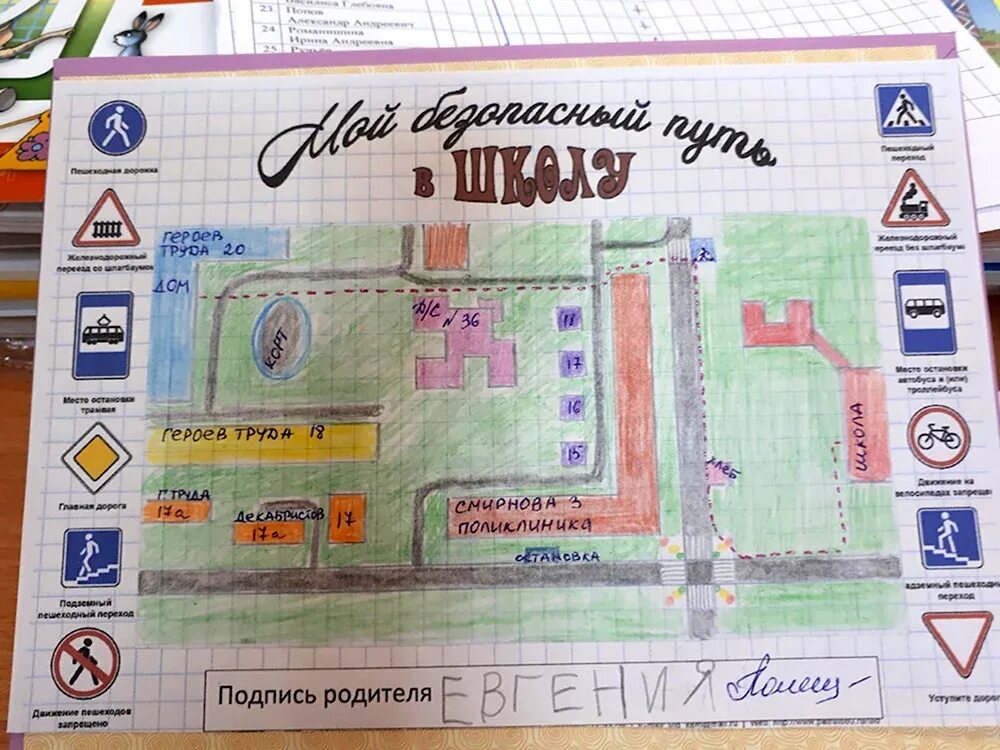 Василиса Глебовна
23 Попов
Александр Андреевич
24 Романишина
Ирина Андреевна
25
Мой безопасный путь
в ШКОЛУ
Пешеходная дорожка
Железнодорожный
переезд со шлагбаумом
Место остановки
трамвая
Главная дорога
Подземный
пешеходный переход
Движение пешеходов
запрещено
Пешеходный
переход
Железнодорожный
переезд без шлагбаума
Место остановки
автобуса и (или)
троллейбуса
Движение на
велосипедах запрещено
адземный пешеходный
переход
Уступите доро
ГЕРОЕВ
ТРУДА 20
ДОМ
КОРТ
Д/С
№ 36
18
17
16
15
ГЕРОЕВ ТРУДА 18
Г. ТРУДА
17а
ДЕКАБРИСТОВ
17а
17
СМИРНОВА 3
ПОЛИКЛИНИКА
ОСТАНОВКА
ХЛЕБ
ШКОЛА
Подпись родителя ЕВГЕНИЯ